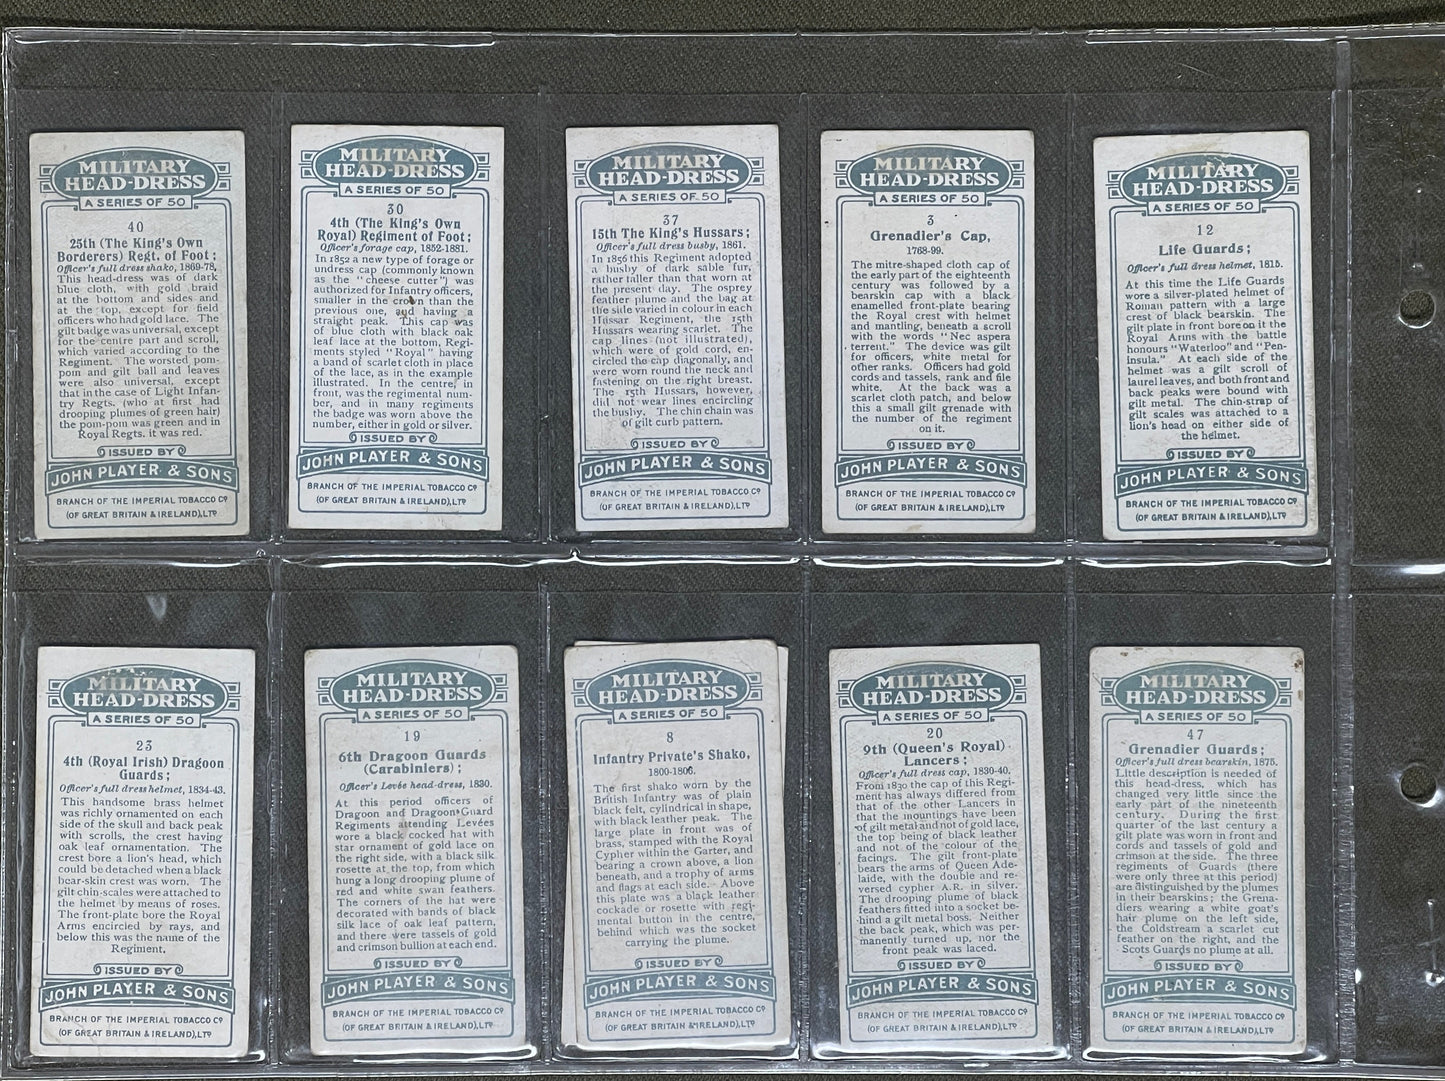 MILITARY
HEAD-DRESS
A SERIES OF 50
40
25th (The King's Own
Borderers) Regt. of Foot;
Officer's full dress shako, 1869-78.
This head-dress was of dark
blue cloth, with gold braid
at the bottom and sides and
at the top, except for field
officers who had gold lace. The
gilt badge was universal, except
for the centre part and scroll,
which varied according to the
Regiment. The worsted pom-
pom and gilt ball and leaves
were also universal, except
that in the case of Light Infan-
try Regts. (who at first had
drooping plumes of green hair)
the pom-pom was green and in
Royal Regts. it was red.
ISSUED BY
JOHN PLAYER & SONS
BRANCH OF THE IMPERIAL TOBACCO Co
(OF GREAT BRITAIN & IRELAND), LTD
MILITARY
HEAD-DRESS
A SERIES OF 50
30
4th (The King's Own
Royal) Regiment of Foot;
Officer's forage cap, 1852-1881.
In 1852 a new type of forage or
undress cap (commonly known
as the "cheese cutter") was
authorized for Infantry officers,
smaller in the crown than the
previous one, and having a
straight peak. This cap was
of blue cloth with black oak
leaf lace at the bottom, Regi-
ments styled "Royal" having
a band of scarlet cloth in place
of the lace, as in the example
illustrated. In the centre, in
front, was the regimental num-
ber, and in many regiments
the badge was worn above the
number, either in gold or silver.
ISSUED BY
JOHN PLAYER & SONS
BRANCH OF THE IMPERIAL TOBACCO Co
(OF GREAT BRITAIN & IRELAND), LTD
MILITARY
HEAD-DRESS
A SERIES OF 50
37
15th The King's Hussars;
Officer's full dress busby, 1861.
In 1856 this Regiment adopted
a busby of dark sable fur,
rather taller than that worn at
the present day. The osprey
feather plume and the bag at
the side varied in colour in each
Hussar Regiment, the 15th
Hussars wearing scarlet. The
cap lines (not illustrated),
which were of gold cord, en-
circled the cap diagonally, and
were worn round the neck and
fastening on the right breast.
The 15th Hussars, however,
did not wear lines encircling
the busby. The chin chain was
of gilt curb pattern.
ISSUED BY
JOHN PLAYER & SONS
BRANCH OF THE IMPERIAL TOBACCO Co
(OF GREAT BRITAIN & IRELAND), LTD
MILITARY
HEAD-DRESS
A SERIES OF 50
3
Grenadier's Cap,
1768-99.
The mitre-shaped cloth cap of
the early part of the eighteenth
century was followed by a
bearskin cap with a black
enamelled front-plate bearing
the Royal crest with helmet
and mantling, beneath a scroll
with the words "Nec aspera
terrent." The device was gilt
for officers, white metal for
other ranks. Officers had gold
cords and tassels, rank and file
white. At the back was a
scarlet cloth patch, and below
this a small gilt grenade with
the number of the regiment
on it.
ISSUED BY
JOHN PLAYER & SONS
BRANCH OF THE IMPERIAL TOBACCO Co
(OF GREAT BRITAIN & IRELAND), LTD
MILITARY
HEAD-DRESS
A SERIES OF 50
12
Life Guards;
Officer's full dress helmet, 1815.
At this time the Life Guards
wore a silver-plated helmet of
Roman pattern with a large
crest of black bearskin. The
gilt plate in front bore on it the
Royal Arms with the battle
honours "Waterloo" and "Pen-
insula." At each side of the
helmet was a gilt scroll of
laurel leaves, and both front and
back peaks were bound with
gilt metal. The chin-strap of
gilt scales was attached to a
lion's head on either side of
the helmet.
ISSUED BY
JOHN PLAYER & SONS
BRANCH OF THE IMPERIAL TOBACCO Co
(OF GREAT BRITAIN & IRELAND), LTD
MILITARY
HEAD-DRESS
A SERIES OF 50
23
4th (Royal Irish) Dragoon
Guards;
Officer's full dress helmet, 1834-43.
This handsome brass helmet
was richly ornamented on each
side of the skull and back peak
with scrolls, the crest having
oak leaf ornamentation. The
crest bore a lion's head, which
could be detached when a black
bear-skin crest was worn. The
gilt chin-scales were attached to
the helmet by means of roses.
The front-plate bore the Royal
Arms encircled by rays, and
below this was the name of the
Regiment.
ISSUED BY
JOHN PLAYER & SONS
BRANCH OF THE IMPERIAL TOBACCO Co
(OF GREAT BRITAIN & IRELAND), LTD
MILITARY
HEAD-DRESS
A SERIES OF 50
19
6th Dragoon Guards
(Carabiniers);
Officer's Levée head-dress, 1830.
At this period officers of
Dragoon and Dragoon Guard
Regiments attending Levées
wore a black cocked hat with
star ornament of gold lace on
the right side, with a black silk
rosette at the top, from which
hung a long drooping plume of
red and white swan feathers.
The corners of the hat were
decorated with bands of black
silk lace of oak leaf pattern,
and there were tassels of gold
and crimson bullion at each end.
ISSUED BY
JOHN PLAYER & SONS
BRANCH OF THE IMPERIAL TOBACCO Co
(OF GREAT BRITAIN & IRELAND), LTD
MILITARY
HEAD-DRESS
A SERIES OF 50
8
Infantry Private's Shako,
1800-1806.
The first shako worn by the
British Infantry was of plain
black felt, cylindrical in shape,
with black leather peak. The
large plate in front was of
brass, stamped with the Royal
Cypher within the Garter, and
bearing a crown above, a lion
beneath, and a trophy of arms
and flags at each side. Above
this plate was a black leather
cockade or rosette with regi-
mental button in the centre,
behind which was the socket
carrying the plume.
ISSUED BY
JOHN PLAYER & SONS
BRANCH OF THE IMPERIAL TOBACCO Co
(OF GREAT BRITAIN & IRELAND), LTD
MILITARY
HEAD-DRESS
A SERIES OF 50
20
9th (Queen's Royal)
Lancers;
Officer's full dress cap, 1830-40.
From 1830 the cap of this Regi-
ment has always differed from
that of the other Lancers in
that the mountings have been
of gilt metal and not of gold lace,
the top being of black leather
and not of the colour of the
facings. The gilt front-plate
bears the arms of Queen Ade-
laide, with the double and re-
versed cypher A.R. in silver.
The drooping plume of black
feathers fitted into a socket be-
hind a gilt metal boss. Neither
the back peak, which was per-
manently turned up, nor the
front peak was laced.
ISSUED BY
JOHN PLAYER & SONS
BRANCH OF THE IMPERIAL TOBACCO Co
(OF GREAT BRITAIN & IRELAND), LTD
MILITARY
HEAD-DRESS
A SERIES OF 50
47
Grenadier Guards;
Officer's full dress bearskin, 1875.
Little description is needed of
this head-dress, which has
changed very little since the
early part of the nineteenth
century. During the first
quarter of the last century a
gilt plate was worn in front and
cords and tassels of gold and
crimson at the side. The three
regiments of Guards (there
were only three at this period)
are distinguished by the plumes
in their bearskins; the Grena-
diers wearing a white goat's
hair plume on the left side,
the Coldstream a scarlet cut
feather on the right, and the
Scots Guards no plume at all.
ISSUED BY
JOHN PLAYER & SONS
BRANCH OF THE IMPERIAL TOBACCO Co
(OF GREAT BRITAIN & IRELAND), LTD